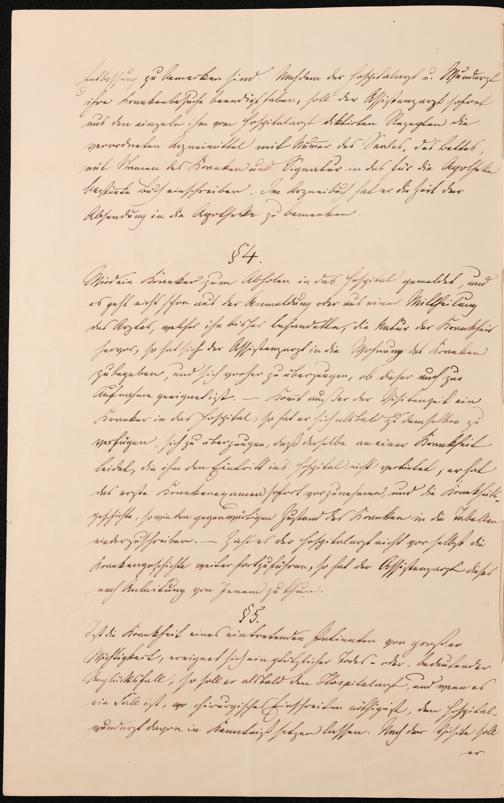 Entlassung zu bemerken sind. Nachdem der Hospitalarzt u. Wundarzt
ihre Krankenbesuche beendigt haben, soll der Assistenzarzt sofort
aus den einzeln ihm vom Hospitalarzt diktirten Rezepten die
verordneten Arzneimittel mit Numer des Saales, des Bettes,
mit Namen des Kranken und Signatur in das für die Apotheke
bestimte Buch einschreiben. Im Arzneibuch hat er die Zeit der
Absendung in die Apotheke zu bemerken.
§ 4.
Wird ein Kranker zum Abholen in das Hospital gemeldet, und
es geht nicht schon aus der Anmeldung oder aus einer Mittheilung
des Arztes, welcher ihn bisher behandelte, die Natur der Krankheit
hervor, so hat sich der Assistenzarzt in die Wohnung des Kranken
zu begeben, und sich vorher zu überzeugen, ob dieser auch zur
Aufnahme geeignet ist. — Komt außer der Visitenzeit ein
Kranker in das Hospital, so hat er sich alsbald zu demselben zu
verfügen, sich zu überzeugen, daß derselbe an einer Krankheit
leidet, die ihm den Eintritt ins Hospital nicht verbietet, er hat
das erste Krankenexamen sofort vorzunehmen, und die Krankheits-
geschichte, sowie den gegenwärtigen Zustand des Kranken in die Tabellen
niederzuschreiben. — Zieht es der Hospitalarzt nicht vor selbst die
Krankengeschichte weiter fortzuführen, so hat der Assistenzarzt dieses
nach Anleitung von Jenem zu thun.
§ 5.
Ist die Krankheit eines eintretenden Patienten von großer
Wichtigkeit, ereignet sich ein plötzlicher Todes- oder bedeutender
Unglücksfall, so soll er alsbald den Hospitalarzt, und wenn es
ein Fall ist, wo chirurgisches Einschreiten nöthig ist, den Hospital-
wundarzt davon in Kenntniß setzen lassen. Nach der Visite soll
er